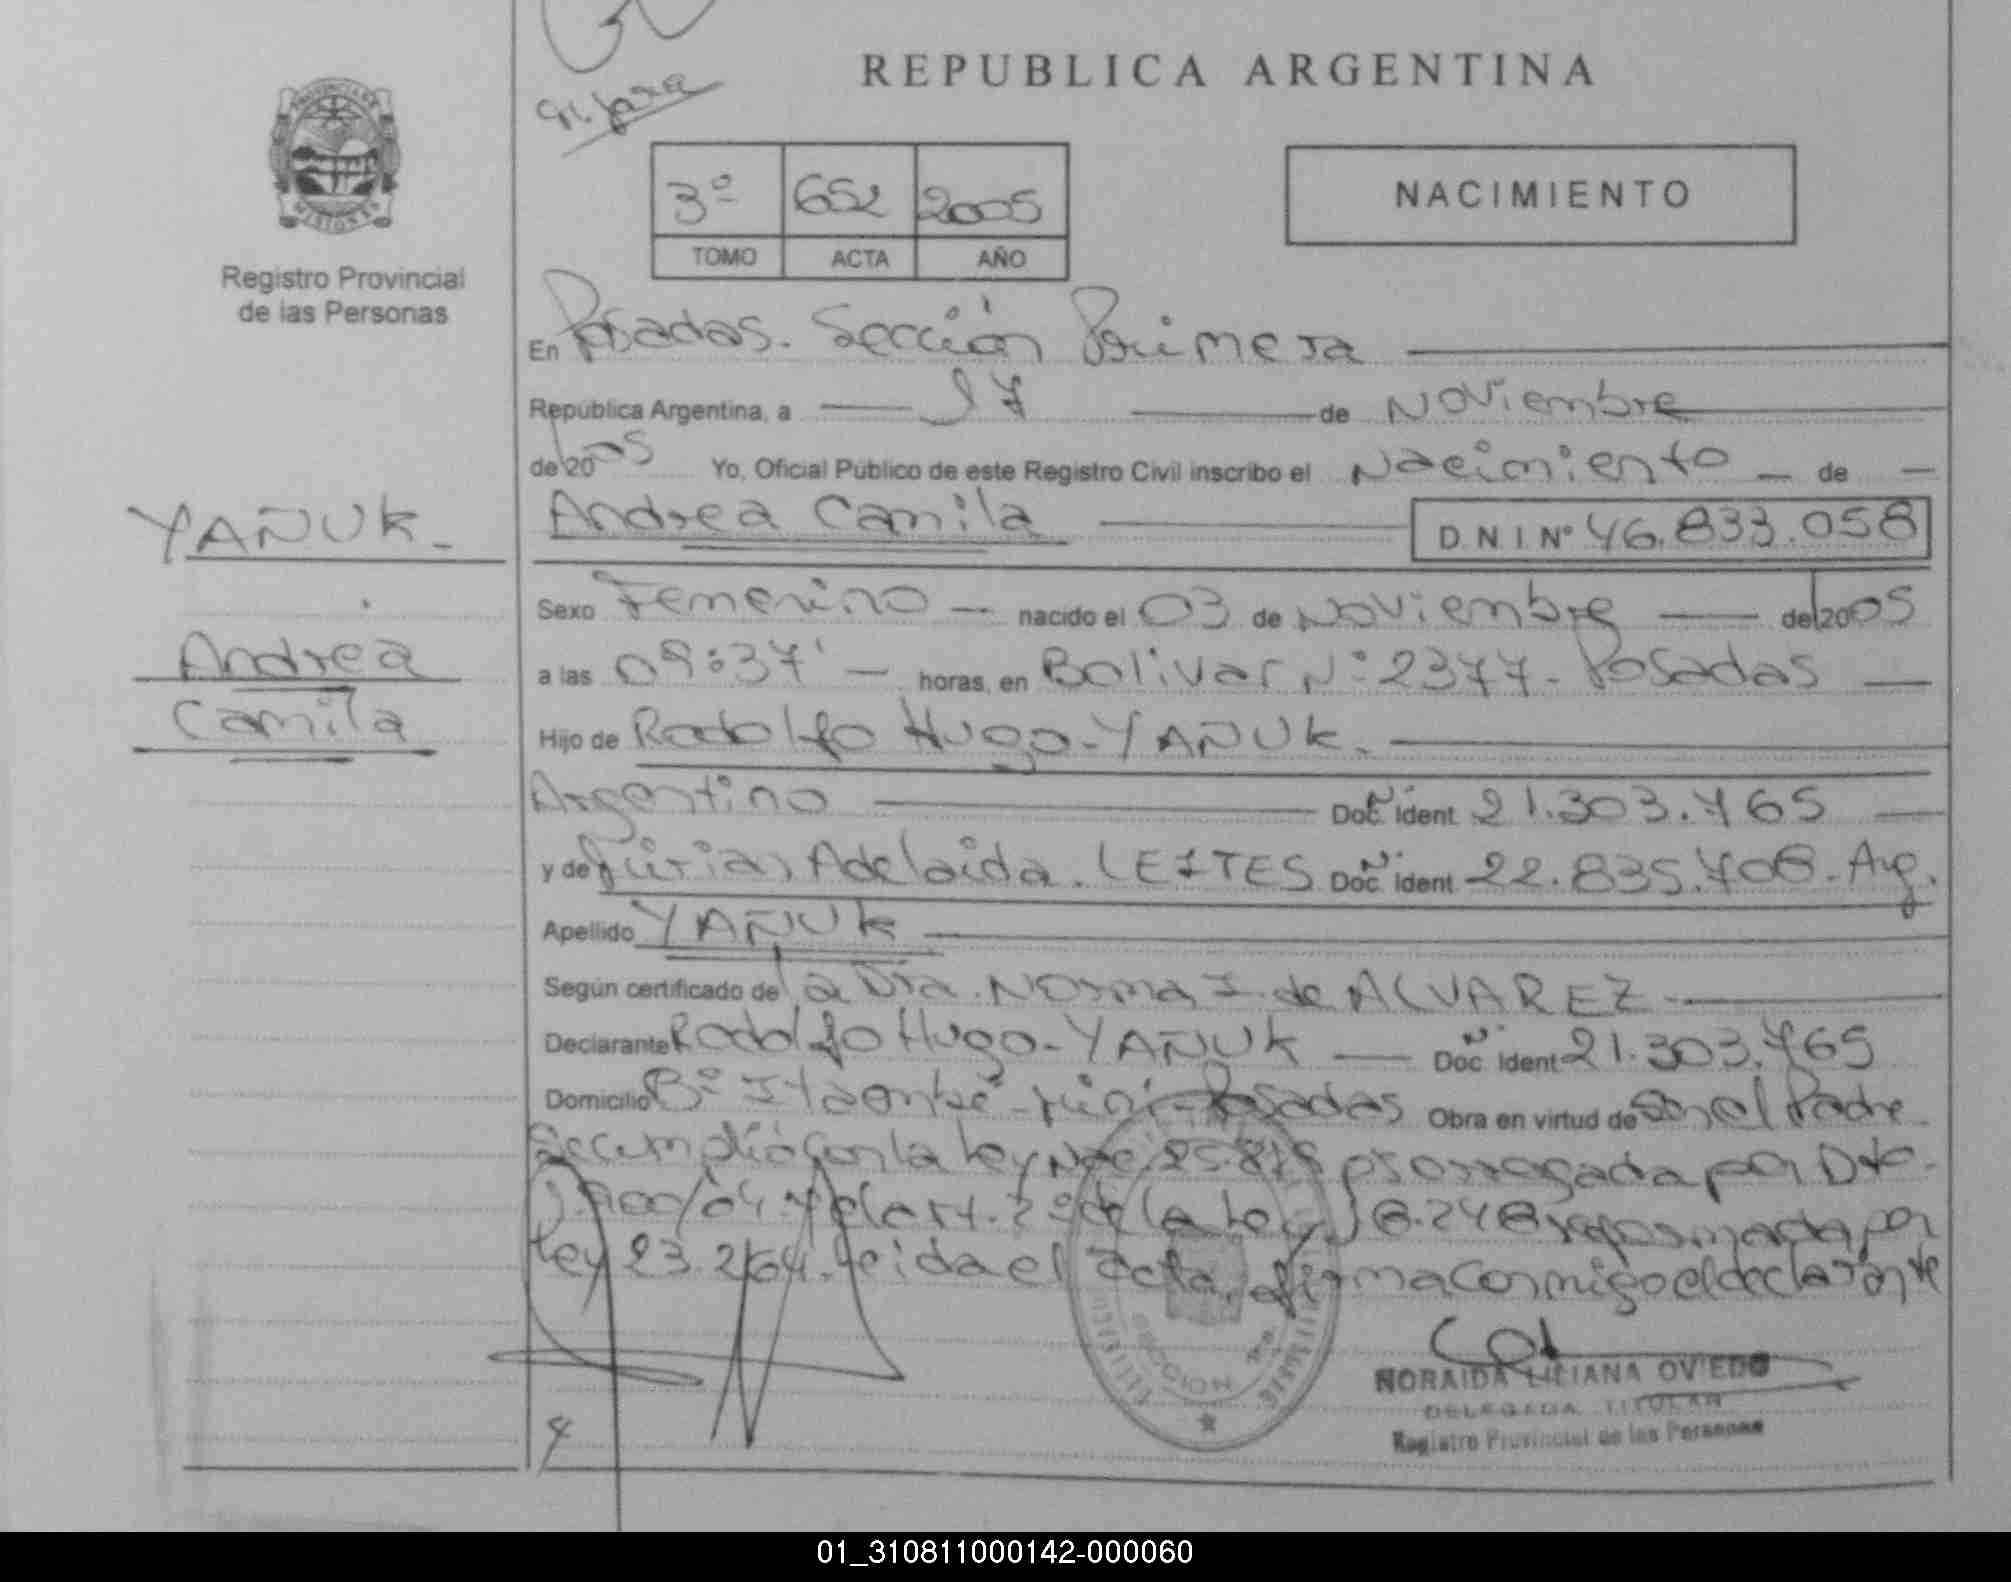 REPUBLICA ARGENTINA
PROVINCIA DE
MISIONES
Registro Provincial
de las Personas
3º 652 2005
TOMO ACTA AÑO
NACIMIENTO
En Posadas. Sección Primera
República Argentina, a 17 de Noviembre
de 2005 Yo, Oficial Público de este Registro Civil inscribo el Nacimiento de
Andrea Camila D.N.I Nº 46.833.058
YAÑUK
Andrea
Camila
Sexo Femenino nacido el 03 de Noviembre de 2005
a las 09:37' horas, en Bolivar Nº 2377 - Posadas
Hijo de Rodolfo Hugo - YAÑUK.
Argentino Doc. Ident. 21.303.765
y de Adelaida. LEITES Doc. Ident. 22.835.708 - Arg.
Apellido YAÑUK
Según certificado de la Dra. Norma I. de ALVAREZ
Declarante Rodolfo Hugo - YAÑUK Doc. Ident. 21.303.765
Domicilio Bº Itaembé - Miní - Posadas Obra en virtud de Ser el Padre
Se cumplió con la Ley Nac. 25.819 prorrogada por Dto.
1.900/04 y el art. 2º de la Ley 18.248 reformada por
Ley 23.264. Leida el acta, firma conmigo el declarante
NORAIDA LILIANA OVIEDO
DELEGADA TITULAR
Registro Provincial de las Personas
SECCION 1ra.
01_310811000142-000060